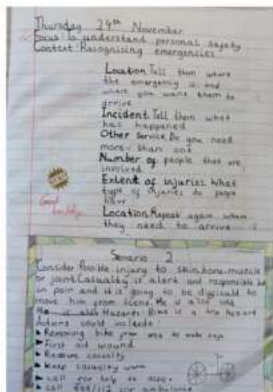 Thursday 24th November
Focus: To understand personal safety
Context: Recognising emergencies
Location. Tell them where
the emergency is and
where you want them to
arrive
Incident. Tell them what
has happened
Other Service. Do you need
more than one
Number of people that are
involved
Extent of injuries. What
type of injuries do people
have
Good
Location. Repeat again where
they need to arrive
Senario 2
Consider Possible injury to skin, bone, muscle
or joint. Casualty is alert and responsible but
in pain and it is going to be difficult to
move him from scene. He is
Hazards: Bike is a trip hazard
Actions could include:
Removing bike from area to make safe
First aid wound
casualty
Keep casualty warm
Call for help to
call 999/112 for ambulance